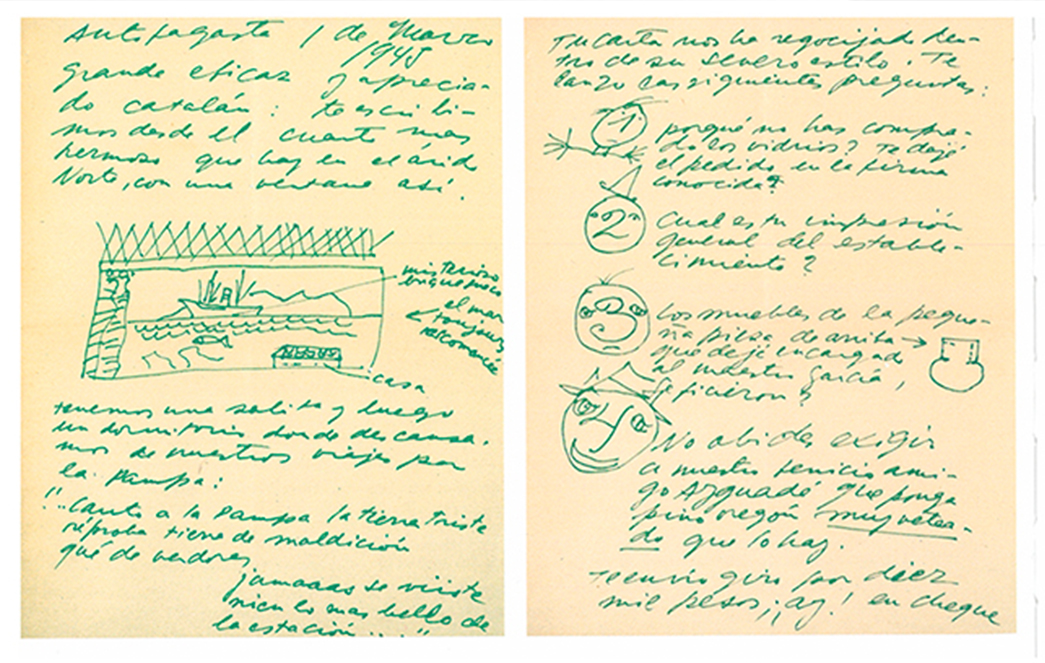 Antofagasta 1 de Marzo
1945
Grande eficaz y aprecia-
do catalán: te escribi-
mos desde el cuarto mas
hermoso que hay en el árido
Norte, con una ventana así.
mis
buque
el mar
toujours
recomencé
casa
tenemos una salita y luego
un dormitorio donde descansa-
mos de nuestros viajes por
la Pampa:
"Canto a la Pampa la tierra triste
réproba tierra de maldición
qué de verdores
jamaaas se viiiste
ni en lo mas bello de
la estación...."
Tu carta nos ha regocijado den-
tro de su severo estilo. Te
lanzo las siguientes preguntas:
1
porqué no has compra-
do los vidrios? Te dejé
el pedido en la forma
conocida?
2
Cual es tu impresión
general del estable-
cimiento?
3
Los muebles de la peque-
ña pieza de arriba
que dejé encargado
al maestro García,
se hicieron?
4
No olvides exigir
a nuestro fenicio ami-
go Azguadé que ponga
pino oregón muy vetea-
do que lo hay.
Te envío giro por diez
mil pesos ¡¡ay! en cheque